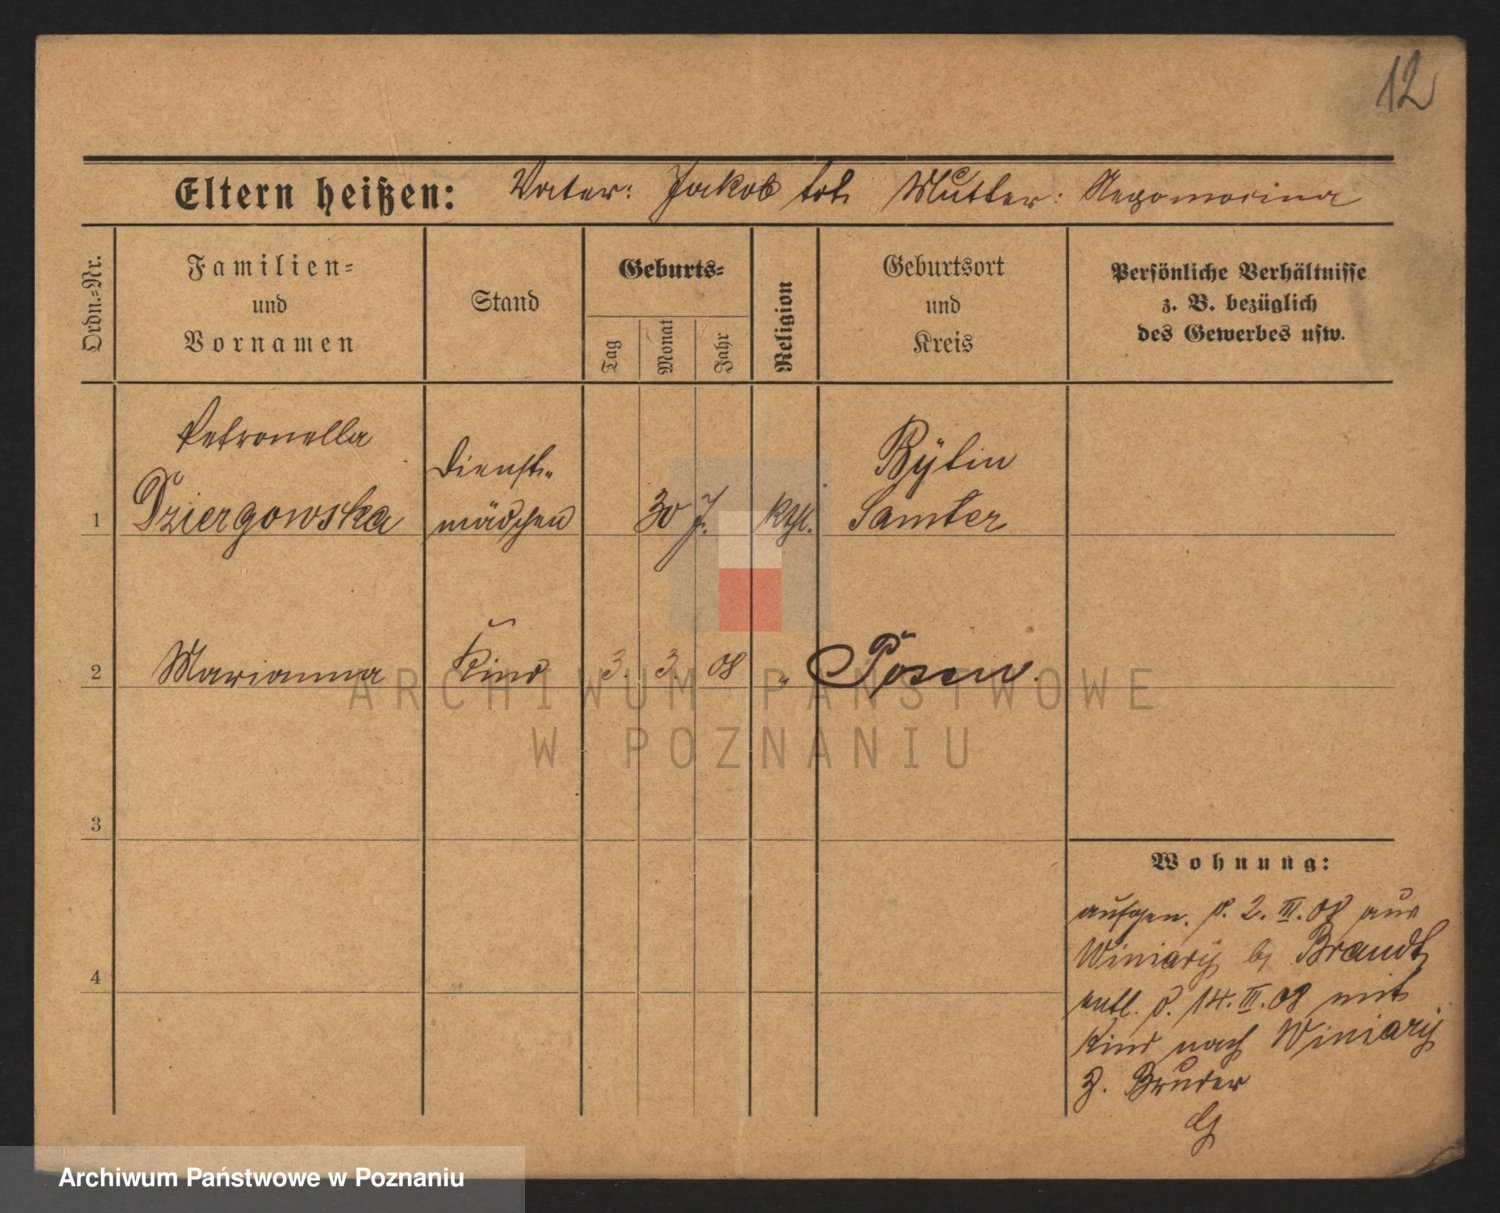 12
Eltern heißen: Vater: Jakob tot Mutter:
Ordn.=Nr.
Familien=
und
Vornamen
Stand
Geburts=
Tag
Monat
Jahr
Religion
Geburtsort
und
Kreis
Persönliche Verhältnisse
z. B. bezüglich
des Gewerbes usw.
Petronella
Dziergowska
Dienst=
mädchen
30 J.
kthl.
Bytin
Samter
1
2 Marianna Kind 3. 3. 08 " Posen.
3
4
Wohnung:
aufgen. d. 2. III. 08 aus
Winiary b Brandt
entl. d. 14. III. 08 mit
Kind nach Winiary
z. Bruder
ARCHIWUM PAŃSTWOWE
W POZNANIU
Archiwum Państwowe w Poznaniu